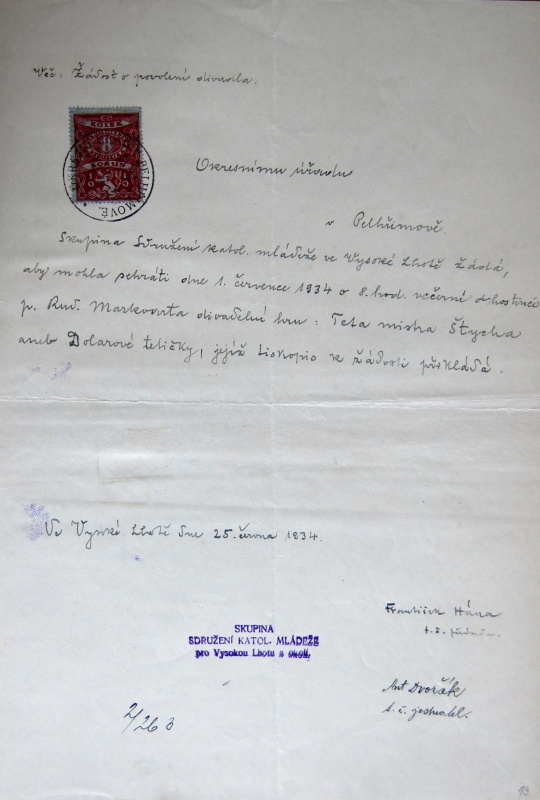 Věc: Žádost o povolení divadla.
8
KOLEK
KORUN
Okresnímu úřadu
v Pelhřimově.
Skupina Sdružení katol. mládeže ve Vysoké Lhotě žádá,
aby mohla sehráti dne 1. července 1934 o 8. hod. večerní v hostinci
p. Rud. Markvarta divadelní hru: Teta mistra Štycha
aneb Dolarové tetičky, jejíž tiskopis k žádosti přikládá.
Ve Vysoké Lhotě dne 25. června 1934.
František Hána
t.č. předseda.
SKUPINA
SDRUŽENÍ KATOL. MLÁDEŽE
pro Vysokou Lhotu a okolí.
Ant Dvořák
t. č. jednatel.
2/263
13